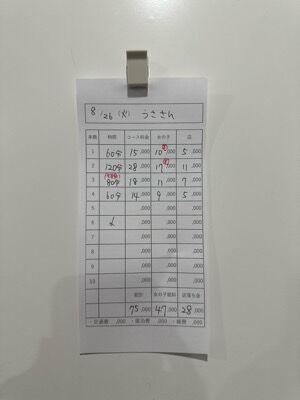 8/26 (火) うささん
本数 時間 コース料金 女の子 店
1 60分 15,000 10,000 5,000
2 120分 28,000 17,000 11,000
3 80分 18,000 11,000 7,000
4 60分 14,000 9,000 5,000
5 ,000 ,000 ,000
6 ,000 ,000 ,000
7 ,000 ,000 ,000
8 ,000 ,000 ,000
9 ,000 ,000 ,000
10 ,000 ,000 ,000
75,000 47,000 28,000